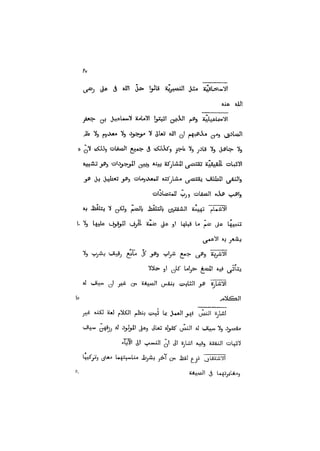 ٢٧
الاسحاقيّة مثل النصيريّة قالوا حلّ الله فى علىّ رضى
الله عنه
الاسماعيليّة وهم الذين اثبتوا الامامة لاسماعيل بن جعفر
الصادق ومن مذهبهم ان الله تعالى لا موجود ولا معدوم ولا عالم
ولا جاهل ولا قادر ولا عاجز وكذلك فى جميع الصفات وذلك لانّ ٥
الاثبات الحقيقىّ يقتضى المشاركة بينه وبين الموجودات وهو تشبيه
والنفى المطلق يقتضى مشاركته للمعدومات وهو تعطيل بل هو
واهب هذه الصفات وربّ المتضادّات
الاشمام تهيئة الشفتين بالتلفّظ بالضمّ ولكن لا يتلفّظ به
تنبيهًا على ضمّ ما قبلها او على ضمّة الحرف الموقوف عليها ولا ١٠
يشعر به الاعمى
الاشربة وهى جمع شراب وهو كلّ مائع رقيق يشرب ولا
يتأتّى فيه المضغ حرامًا كان او حلالًا
الاشارة هو الثابت بنفس الصيغة من غير ان سيق له
الكلام ١٥
اشارة النصّ فهو العمل بما ثبت بنظم الكلام لغة لكنه غير
مقصود ولا سيق له النصّ كقوله تعالى وعلى المولود له رزقهنّ سيق
لاثبات النفقة وفيه اشارة الى انّ النسب الى الآباء
الاشتقاق نزع لفظ من آخر بشرط مناسبتهما معنى وتركيبًا
ومغايرتهما فى الصيغة ٢٠